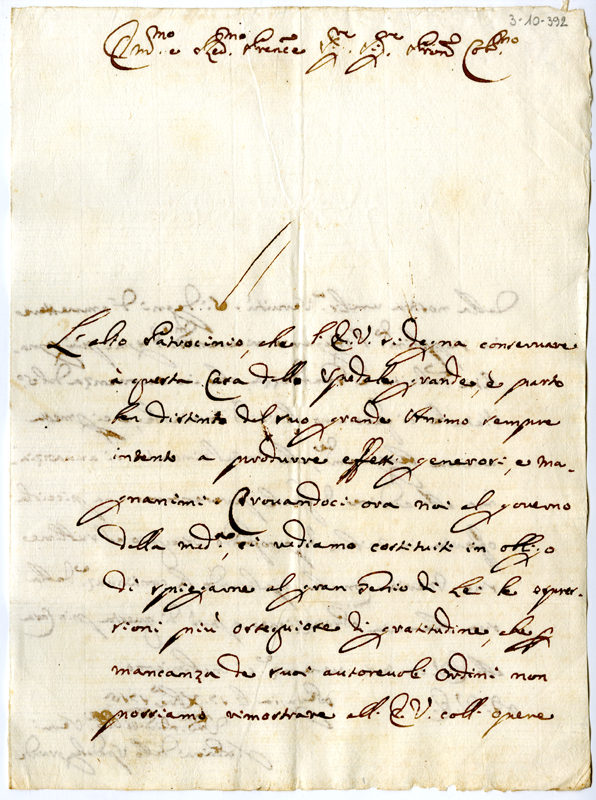 3-10-392
Em.mo e Red.mo Prence S.re S.re Pron Col.mo
L'alto Patrocinio, che l'E.V. si degna conservare
à questa Casa dello Spedale grande, è parto
ben distinto del suo grande Animo sempre
intento a produrre effetti generosi, e ma-
gnanimi. Trovandoci ora noi al governo
della med.a, ci vediamo costituiti in obligo
di spiegarne al gran Genio di Lei le espres-
sioni più ossequiose di gratitudine, che p
mancanza de suoi autorevoli Ordini non
possiamo rimostrare all'E.V. coll'opere